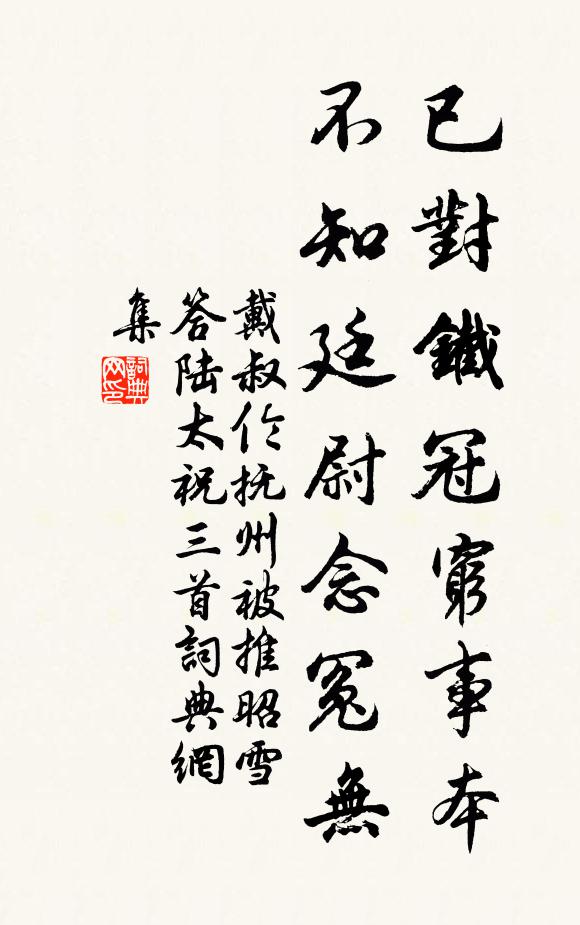 已對鐵冠窮事本
不知廷尉念冤無
戴叔伦抚州被推昭雪
答陆太祝三首詞典網
集
詞典
网印